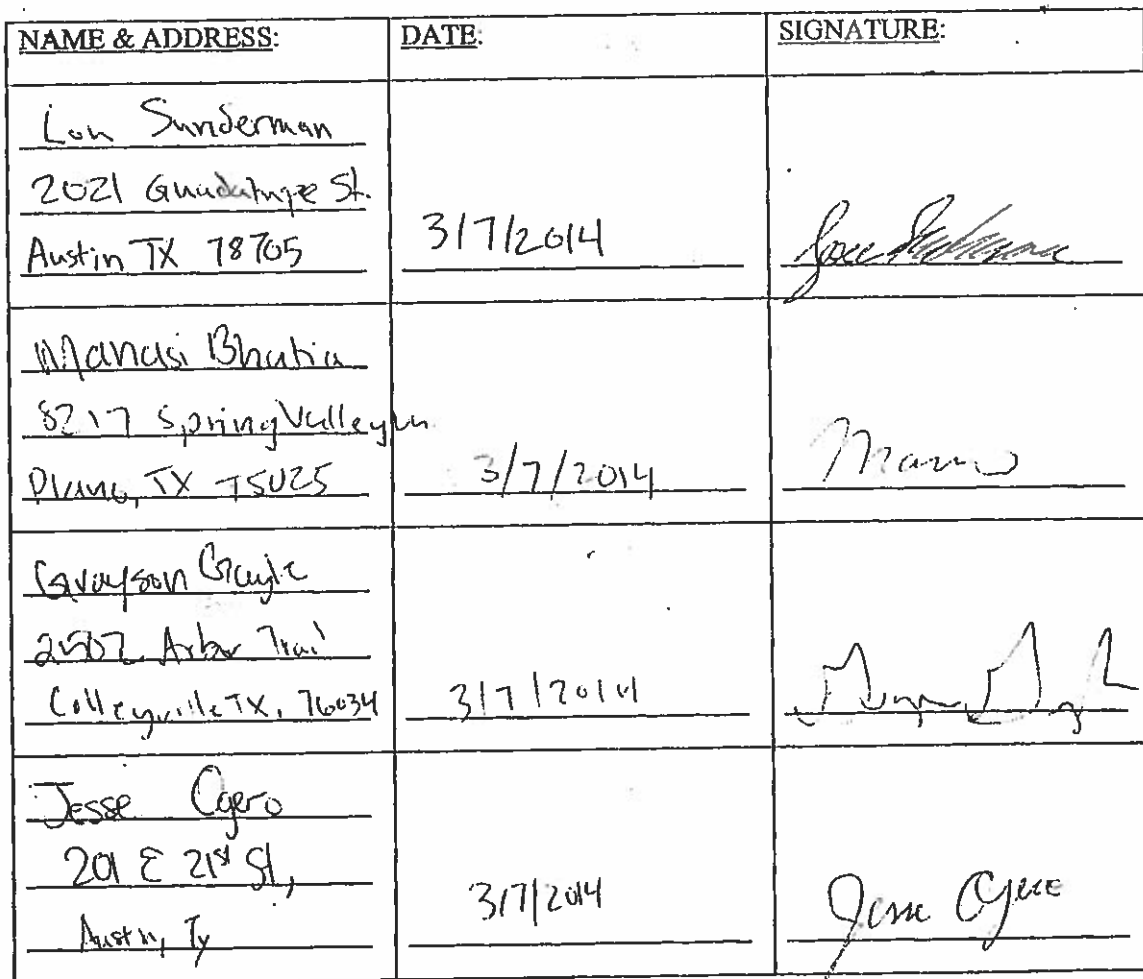 NAME & ADDRESS: DATE: SIGNATURE:
Lou Sunderman
2021 Guadalupe St.
Austin TX 78705 3/7/2014
Manasi Bhatia
8217 Spring Valley Ln
Plano, TX 75025 3/7/2014
Grayson Gayle
2502 Arbor Trail
Colleyville TX, 76034 3/7/2014
Jesse Ogero
201 E 21st St,
Austin, Tx 3/7/2014